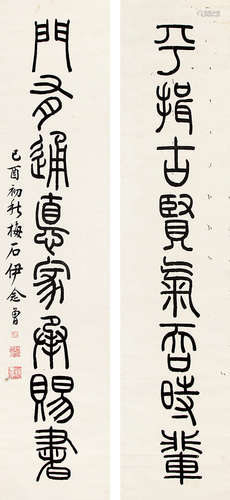 平揖古賢氣吞時輩
門有通悳家承賜書
己酉初秋梅石伊念曾